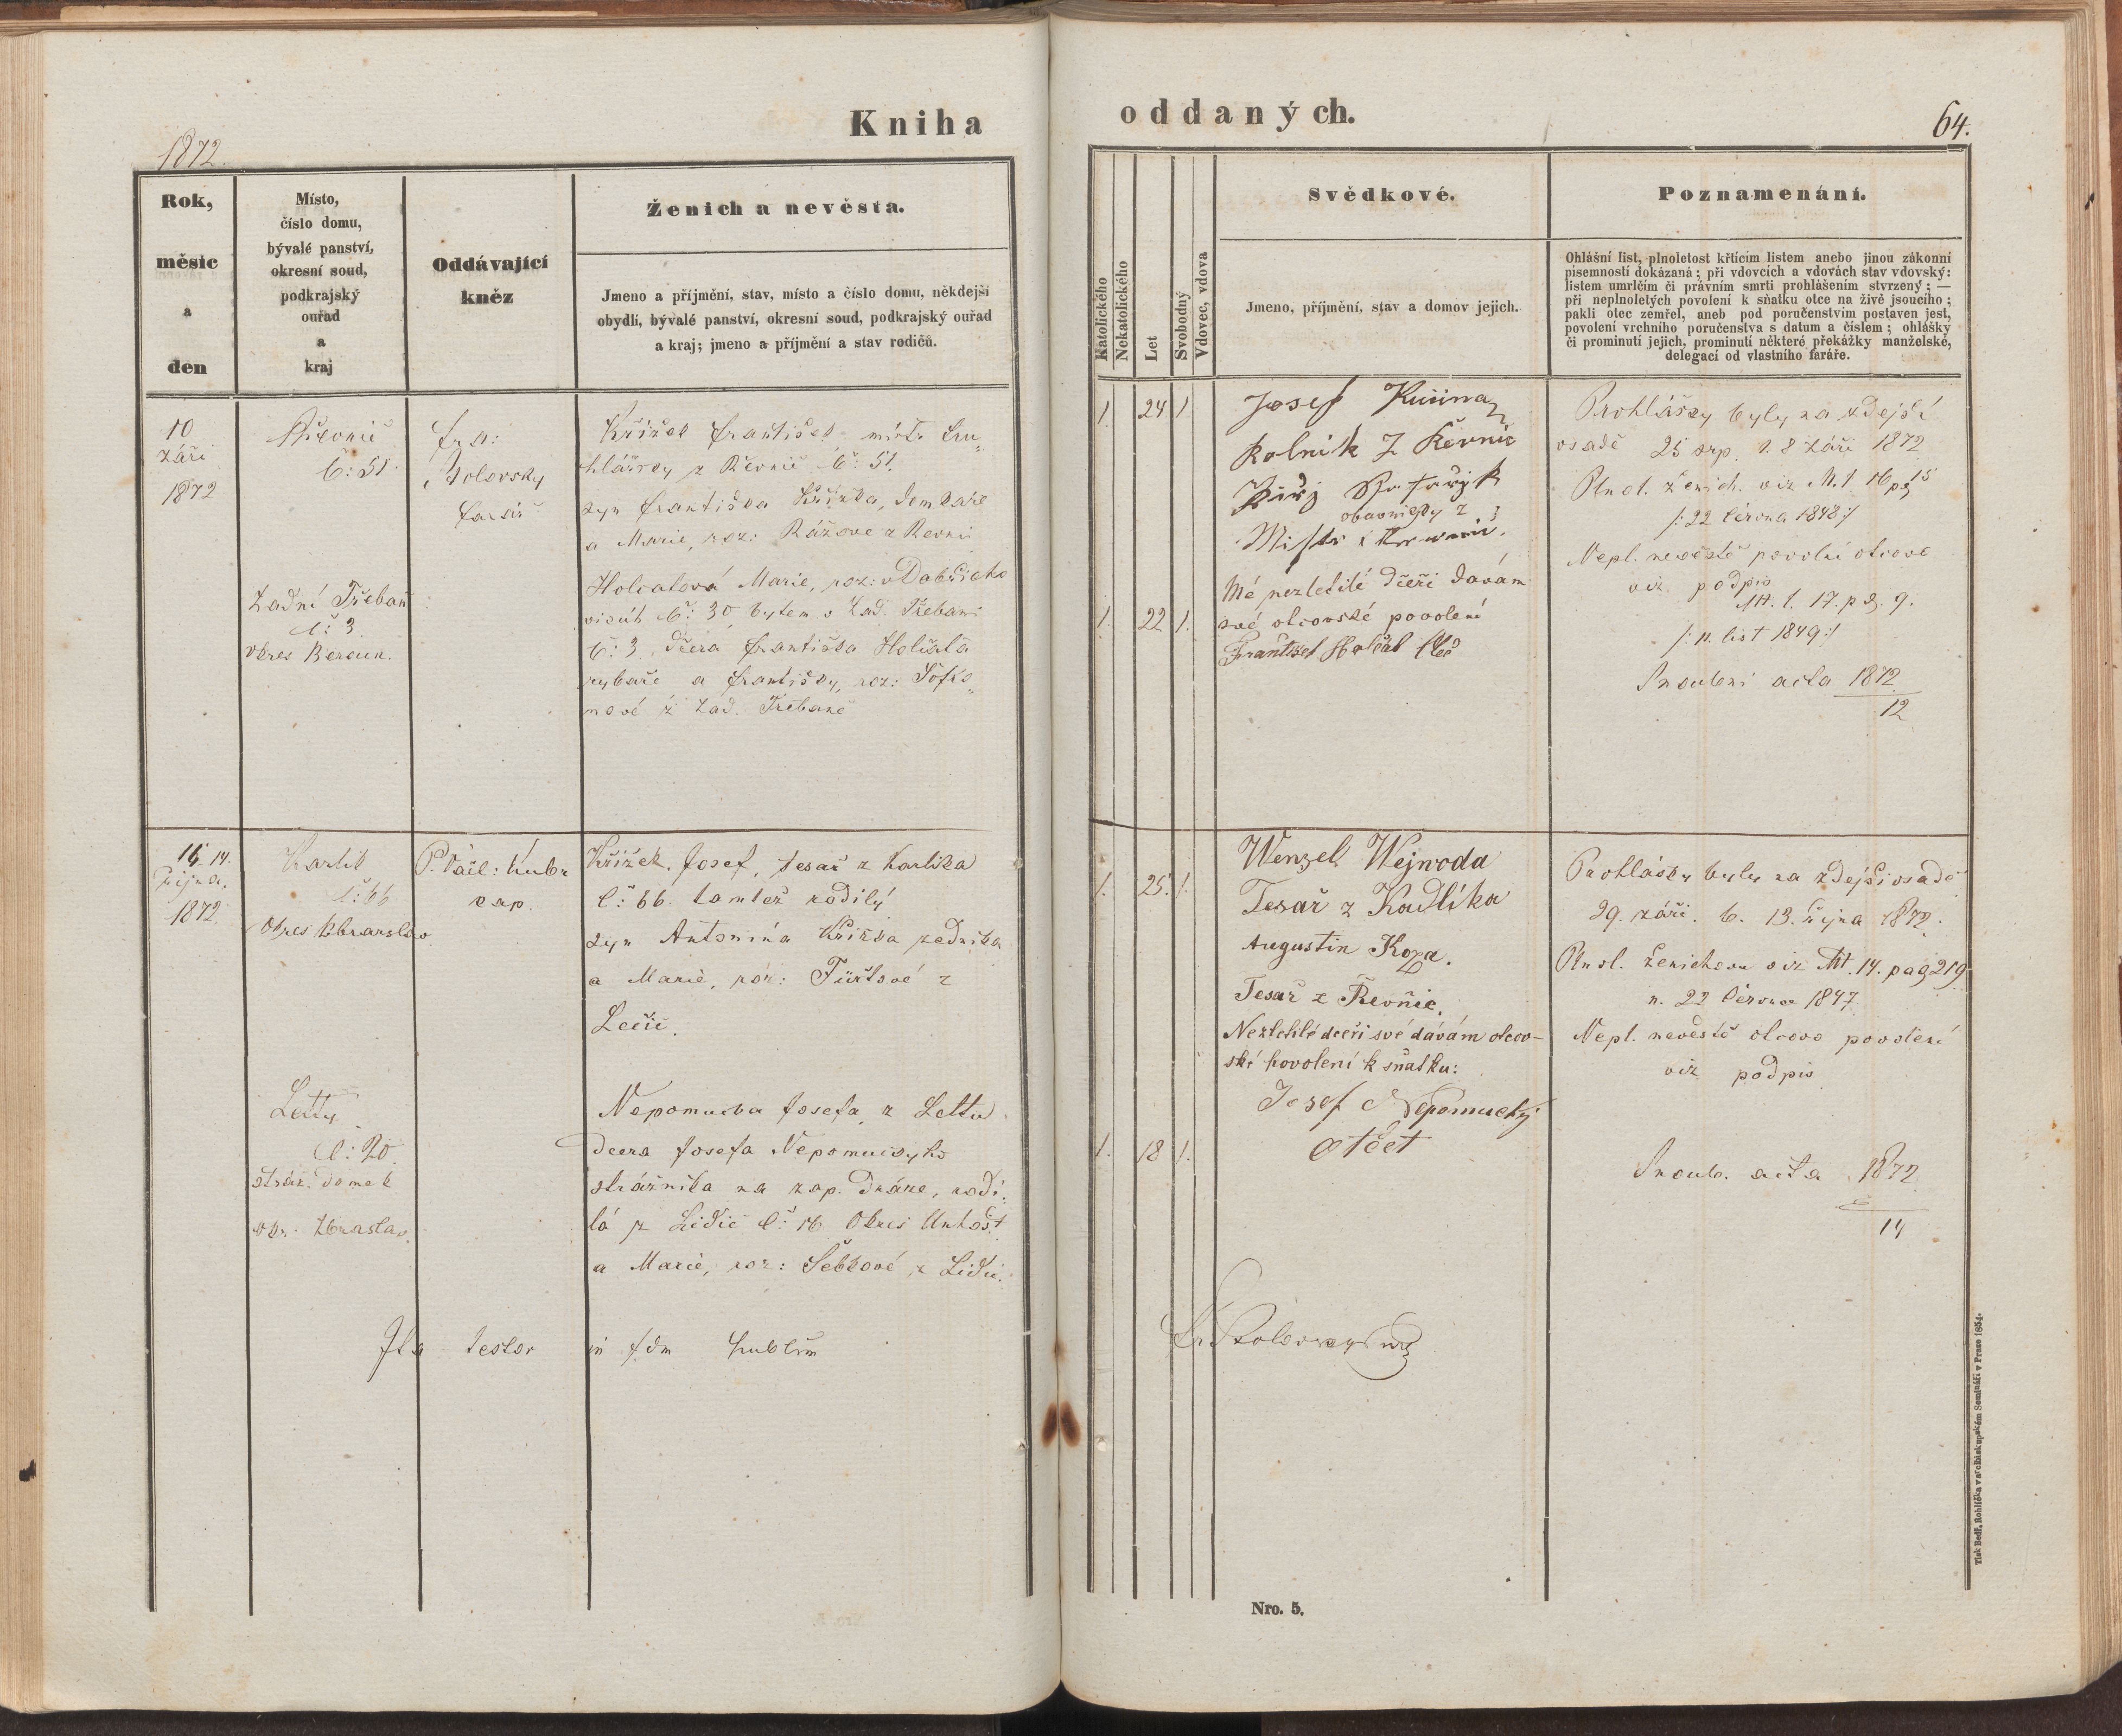 Kniha
oddaných.
64.
1872.
Rok,
měsíc
a
den
Místo,
číslo domu,
bývalé panství,
okresní soud,
podkrajský
ouřad
a
kraj
Oddávající
kněz
Ženich a nevěsta.
Jmeno a příjmění, stav, místo a číslo domu, někdejší
obydlí, bývalé panství, okresní soud, podkrajský ouřad
a kraj; jmeno a příjmění a stav rodičů.
Katolického
Nekatolického
Let
Svobodný
Vdovec, vdova
Svědkové.
Jmeno, příjmění, stav a domov jejich.
Poznamenání.
Ohlášní list, plnoletost křticím listem anebo jinou zákonní
písemností dokázaná; při vdovcích a vdovách stav vdovský:
listem umrlčím či právním smrti prohlášením stvrzený; —
při neplnoletých povolení k sňatku otce na živě jsoucího;
pakli otec zemřel, aneb pod poručenstvím postaven jest,
povolení vrchního poručenstva s datum a číslem; ohlášky
či prominutí jejich, prominutí některé překážky manželské,
delegací od vlastního faráře.
10
září
1872
Řevnic
č: 51.
Fra:
farář
Křížek František
z Řevnic č: 51.
syn Františka Křížka, domkáře
a Marie, roz: Rážove z Revnic
1. 24 1.
Josef Kučina
Rolník Z Řevnic
Jiřj
obuvnický z
Prohlášky byly na zdejší
osadě 25 srp. 1. 8 září 1872
Plnol. ženich. viz M. 1 16 pg 15
/: 22 června 1848 :/
Nepl. nevěstě povolní otcovo
viz podpis
M. 1. 17. pg. 9.
/: n. list 1849 :/
Snoubní acta 1872
12
Zadní Třebaň
č: 3.
okres Beroun.
Holcatová Marie, roz: v Dobřicho
vicích č: 30, bytem v Zad. Třebani
č: 3 dcera Františka Holcata
rybáře a Františky, roz:
mové z Zad. Třebaně
1. 22 1.
Mé nezletilé dceři davám
své otcovské povolení
František Holcat otec
14.
října.
1872
Karlík
č: 66
Okres Zbraslav
P. Václ: Kubr
cap.
Křížek Josef, tesař z Karlíka
č: 66. tamtéž rodilý
syn Antonína Křížka zedníka
a Marie, roz: Fürtové z
Lečic.
1. 25. 1.
Wenzel Wejwoda
Tesař z Kadlíka
Augustin Koza.
Tesař z Řevnic.
Nezletilé dceři své dávám otcov-
ské povolení k sňatku:
Josef Nepomucký
otčet
Prohlášky byly na zdejší osadě
29. září. 6. 13. října 1872.
Plnol. ženichova viz M. 14. pag 219
n. 22 1847
Nepl. nevěstě otcovo povolení
viz podpis
Snoub. acta 1872
14
Letty
č: 20.
stráž. domek
okr. Zbraslav.
Nepomucka Josefa z Lettu
dcera Josefa Nepomuckyho
strážníka na zap. dráze, rodi
lá z Lidic č: 16 Okres Unhošt
a Marie, roz: Šebkové z Lidic.
1. 18 1.
Ita testor in fdm
Nro. 5.
Tisk Bedř. Rohlíčka v arcibiskupském Semináři v Praze 1854.